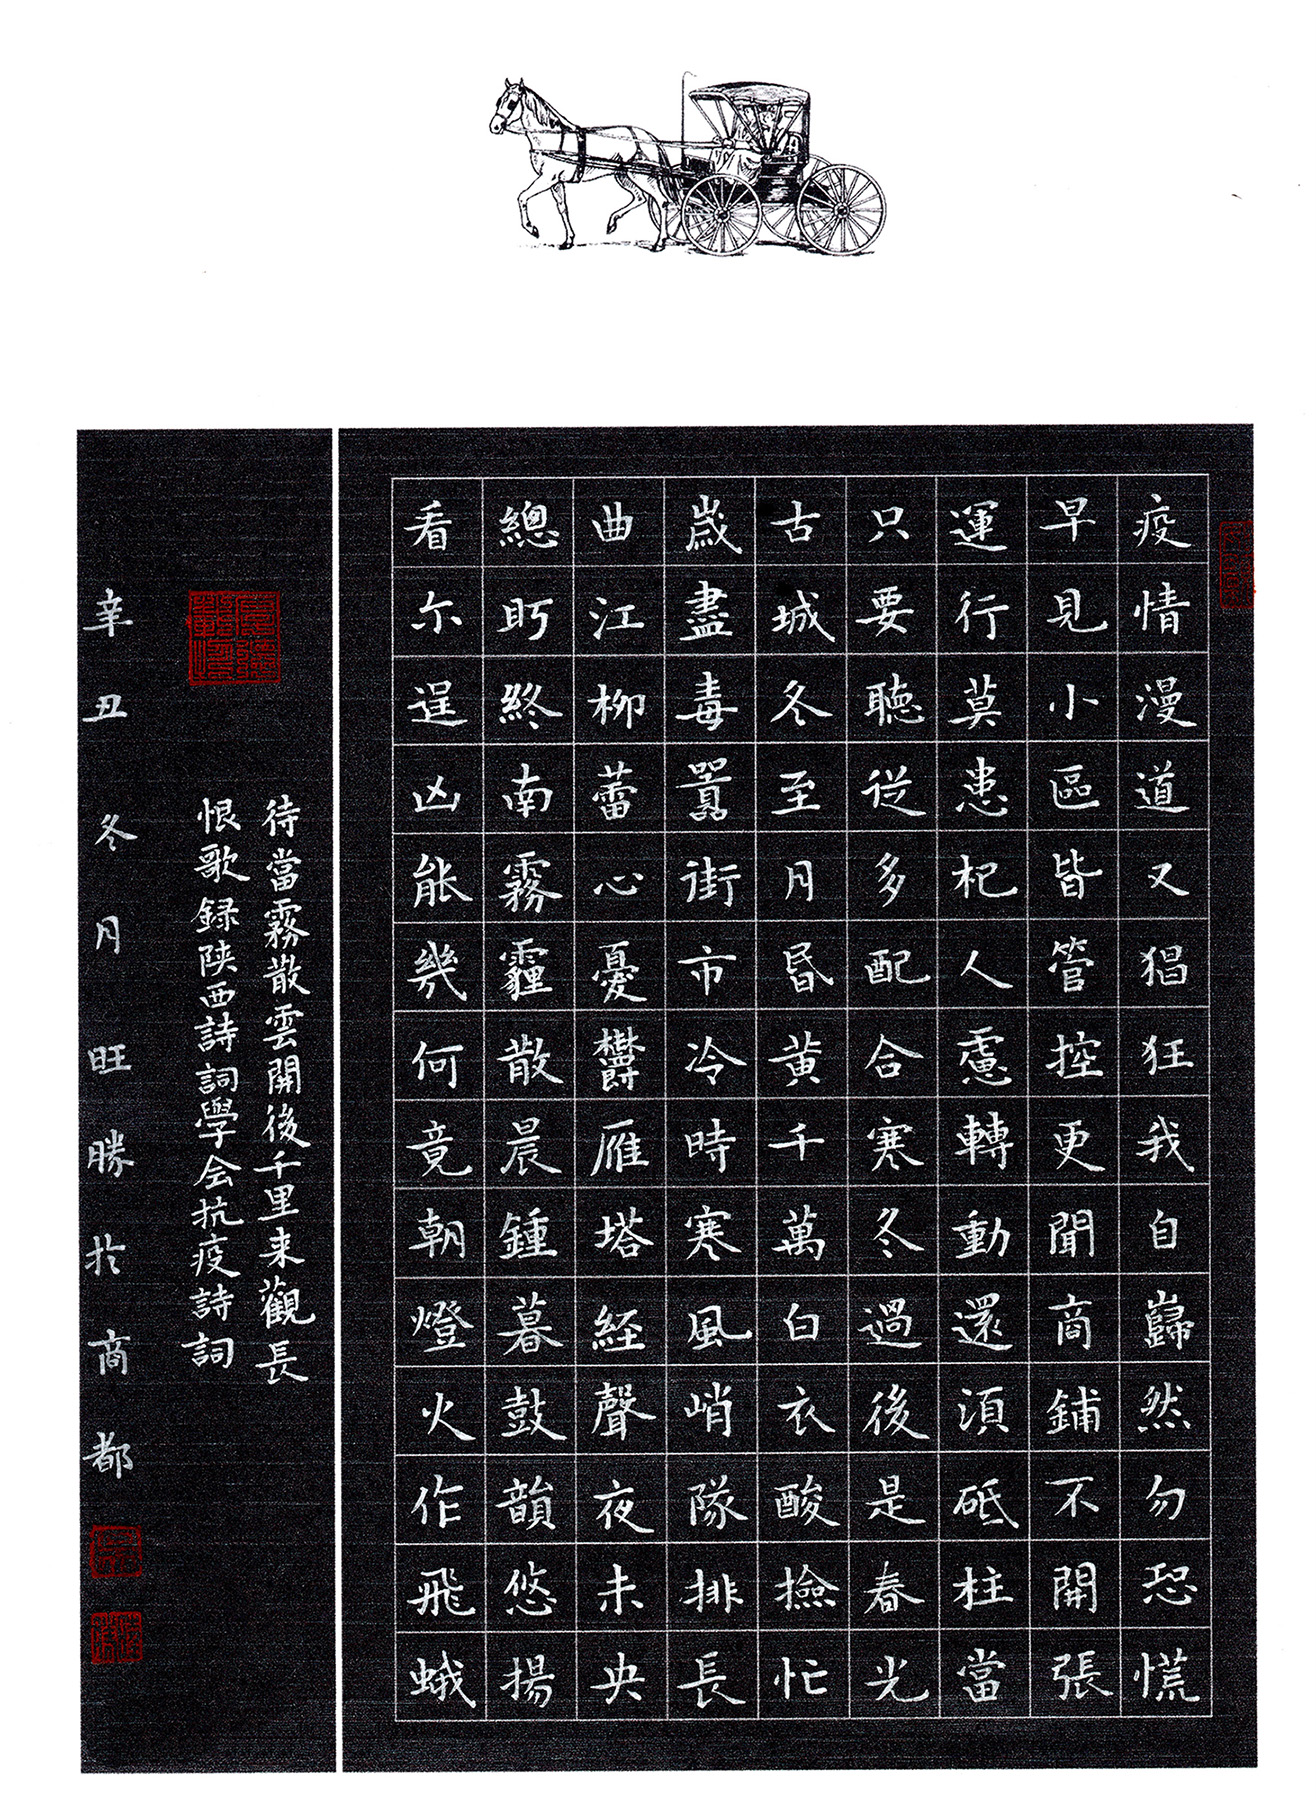 疫情漫道又猖狂我自巋然勿恐慌
早見小區皆管控更聞商鋪不開張
運行莫患杞人慮轉動還須砥柱當
只要聽從多配合寒冬過後是春光
古城冬至月昏黃千萬白衣酸撿忙
歲盡毒囂街市冷時寒風峭隊排長
曲江柳蕾心憂鬱雁塔経聲夜未央
總盻終南霧霾散晨鍾暮鼓韻悠揚
看尓逞凶能幾何竟朝燈火作飛蛾
待當霧散雲開後千里来觀長
恨歌録陕西詩詞學会抗疫詩詞
辛丑冬月旺勝於商都